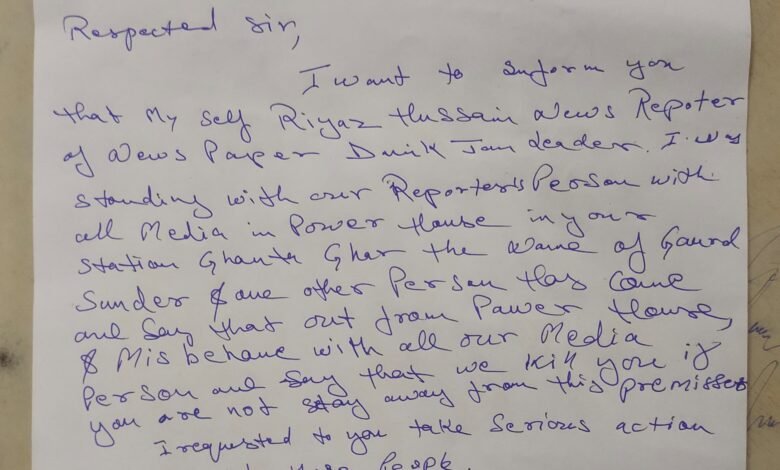 Respected Sir,
I want to inform you
that My self Riyaz Hussain News Repoter
of News Paper Dainik Jan Leader. I was
standing with our Reporter's Person with
all Media in Power House in your
station Ghanta Ghar the Name of Gaurd
Sunder & one other Person Has Come
and Say that out from Pawer House,
& Misbehave with all our Media
Person and Say that we kill you if
you are not stay away from this premisses
I requested to you take Serious action
People.